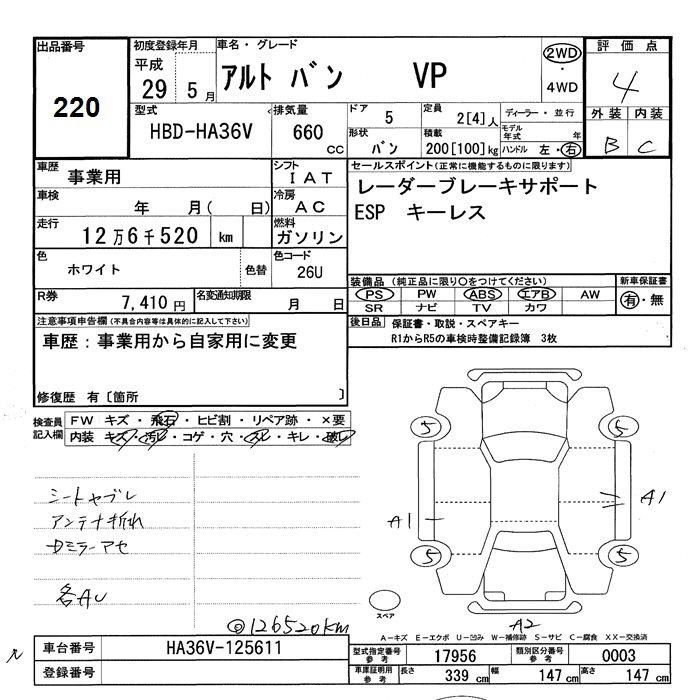 出品番号
220
初度登録年月
平成
29 5 月
車名・グレード
アルト バン VP
2WD
・
4WD
評価点
4
外装 内装
B C
型式
HBD-HA36V
排気量
660 cc
ドア
5
定員
2[4]人
ディーラー・並行
形状
バン
積載
200[100]kg
モデル年式 年
ハンドル 左・右
車歴
事業用
シフト
IAT
車検
年 月( 日)
冷房
AC
走行
12万6千520 km
燃料
ガソリン
色
ホワイト
色替
色コード
26U
セールスポイント(正常に機能するものに限ります)
レーダーブレーキサポート
ESP キーレス
R券
7,410 円
名変通知期限
月 日
装備品 (純正品に限り○をつけてください)
PS PW ABS エアB AW
SR ナビ TV カワ
新車保証書
有・無
後日品 保証書・取説・スペアキー
R1からR5の車検時整備記録簿 3枚
注意事項申告欄(不具合内容等は具体的に記入して下さい)
車歴：事業用から自家用に変更
修復歴 有〔箇所 〕
検査員記入欄
FW キズ・飛石・ヒビ割・リペア跡・×要
内装 キズ・汚レ・コゲ・穴・スレ・キレ・破レ
シートヤブレ
アンテナ折れ
ミラーアセ
各AU
◎126520km
5 5
A1 A1
5 5
スペア
A2
A−キズ E−エクボ U−凹み W−補修跡 S−サビ C−腐食 XX−交換済
車台番号
HA36V-125611
登録番号
型式指定番号
参考
17956
類別区分番号
参考
0003
車庫証明用
参考
長さ 339 cm 幅 147 cm 高さ 147 cm